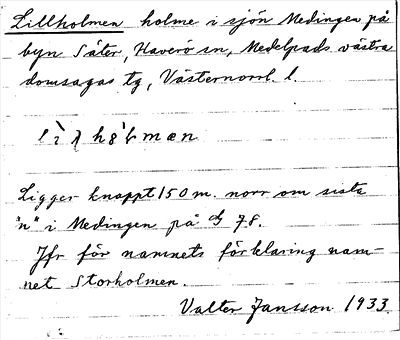 Lillholmen holme i sjön Medingen på
byn Säter, Haverö sn, Medelpads västra
domsagas tg, Västernorrl. l.
Ligger knappt 150 m. norr om sista
"n" i Medingen på 78.
Jfr för namnets förklaring nam-
net Storholmen.
Valter Jansson 1933.